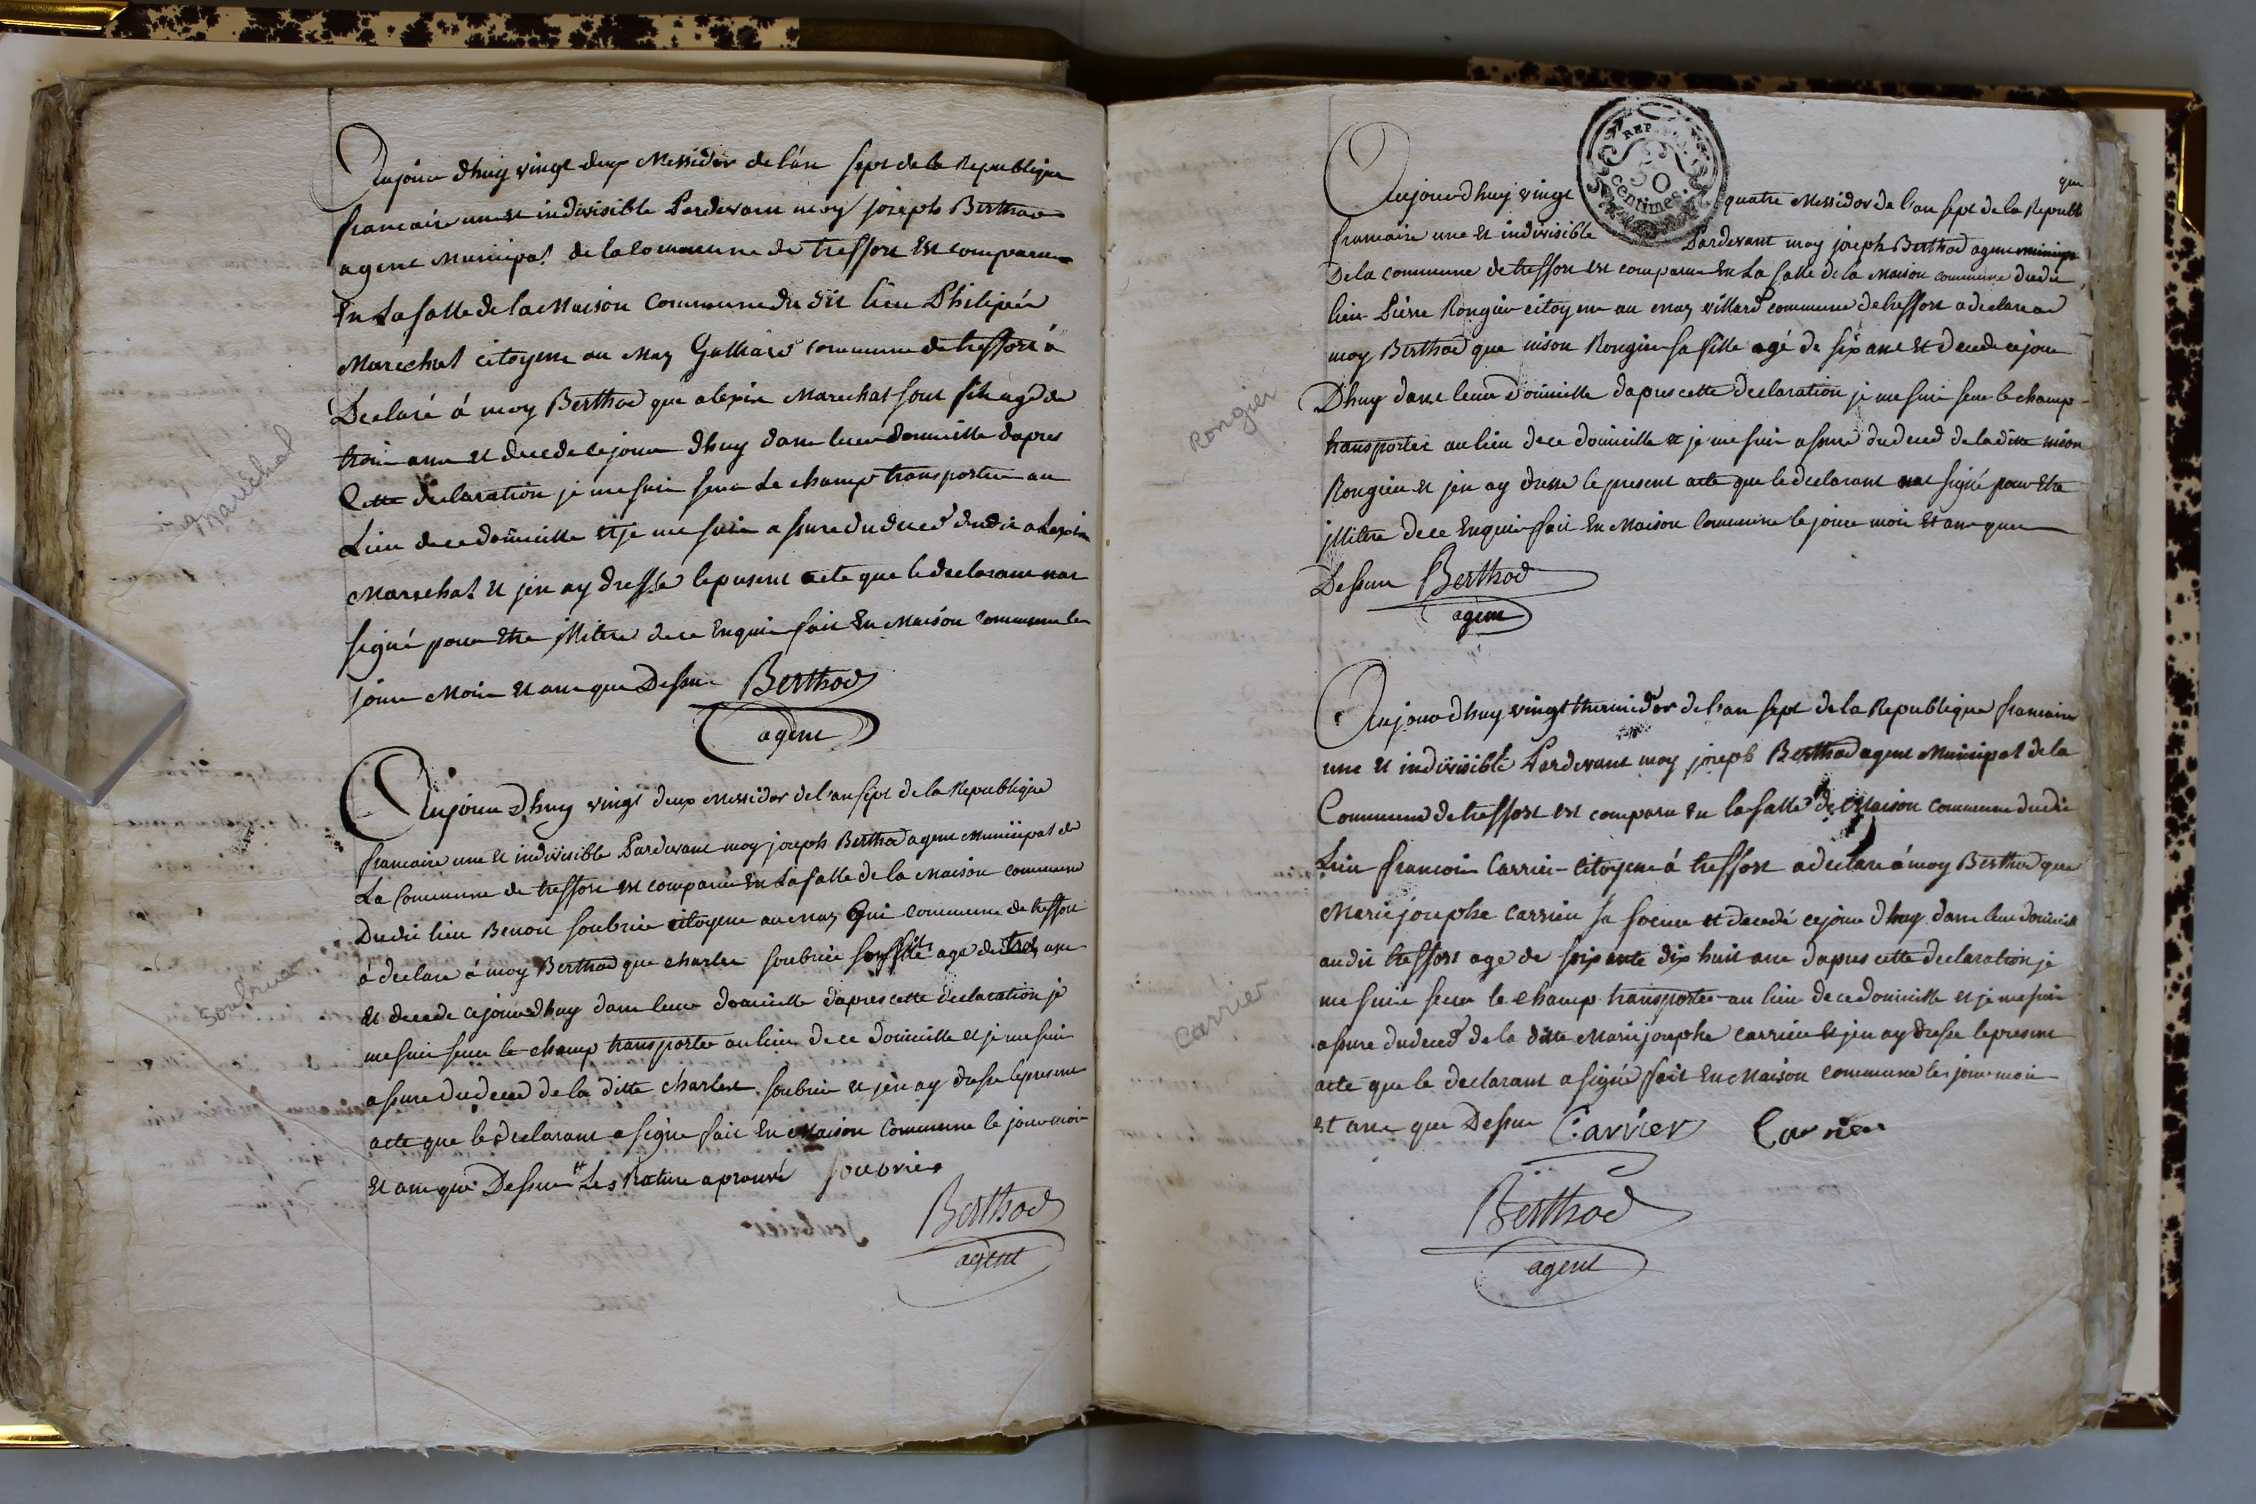 Aujour dhuy vingt deux Messidor de l'an sept de la Republique
francaise une et indivisible Pardevant moy joseph Berthod
agent Municipal de la Commune de treffort Est comparu
En La salle de la Maison Commune du dit lieu Philipe
Marechal citoyen au Maz Galliard commune de treffort á
Declaré á moy Berthod que alexis Marechal son fils agé de
trois ans et decede cejour dhuy dans leur domicille dapres
Cette declaration je me suis sur Le champ transporter au
Lieu de ce domicille et je me suis assure du deced dudit alexis
Marechal et jen ay dressé le present acte que le declarant nat
signé pour Etre illitere de ce Enquis fait En Maison Commune le
jour Mois et an que Dessus Berthod
agent
Marechal
Aujour dhuy vingt deux Messidor de l'an sept de la Republique
francaise une et indivisible Pardevant moy joseph Berthod agent Municipal de
La Commune de treffort est comparu En La salle de la Maison commune
Dudit lieu Benoit soubrier citoyen au Maz commune de treffort
á declare á moy Berthod que charles soubrier son fils age de ans
et decede cejour dhuy dans leur domicille dapres cette declaration je
me suis sur le champ transporter au lieu de ce domicille et je me suis
assure du deced de la ditte charles soubrier et jen ay dresse le present
acte que le declarant a signe fait En Maison Commune le jour mois
et an que Dessus Les Rature aprouvé soubrier
Berthod
agent
Soubrier
REP. FRA.
50
centimes.
que
Aujourdhuy vingt quatre Messidor de l'an sept de la Republi
francaise une et indivisible Pardevant moy joseph Berthod agent municipal
De la commune de treffort est comparu En La salle de la Maison commune dudit
lieu Pierre Rongier citoyen au maz villard commune de treffort a declare a
moy Berthod que nison Rongier sa fille agé de six ans et decede ce jour
Dhuy dans leur Domicille dapres cette declaration je me suis sur le champ
transporter au lieu de ce domicille et je me suis assure du deced de la ditte nison
Rongier et jen ay dresse le present acte que le declarant nat signé pour Etre
illitere de ce Enquis fait En Maison Commune le jour mois et an que
Dessus Berthod
agent
Rongier
Aujourdhuy vingt thermidor de l'an sept de la Republique francaise
une et indivisible Pardevant moy joseph Berthod agent Municipal de la
Commune de treffort est comparu En la salle de Maison commune dudit
Lieu francois Carrier citoyen á treffort a declare á moy Berthod que
Marie josephe carrier sa soeur et decedé cejour dhuy dans leur domicille
au dit treffort age de soixante dix huit ans dapres cette declaration je
me suis sur le champ transporter au lieu de ce domicille et je me suis
assure du deced de la ditte Marie josephe carrier et jen ay dresse le present
acte que le declarant a signé fait En Maison commune les jour mois
et an que Dessus Carrier Carrier
Berthod
agent
Carrier